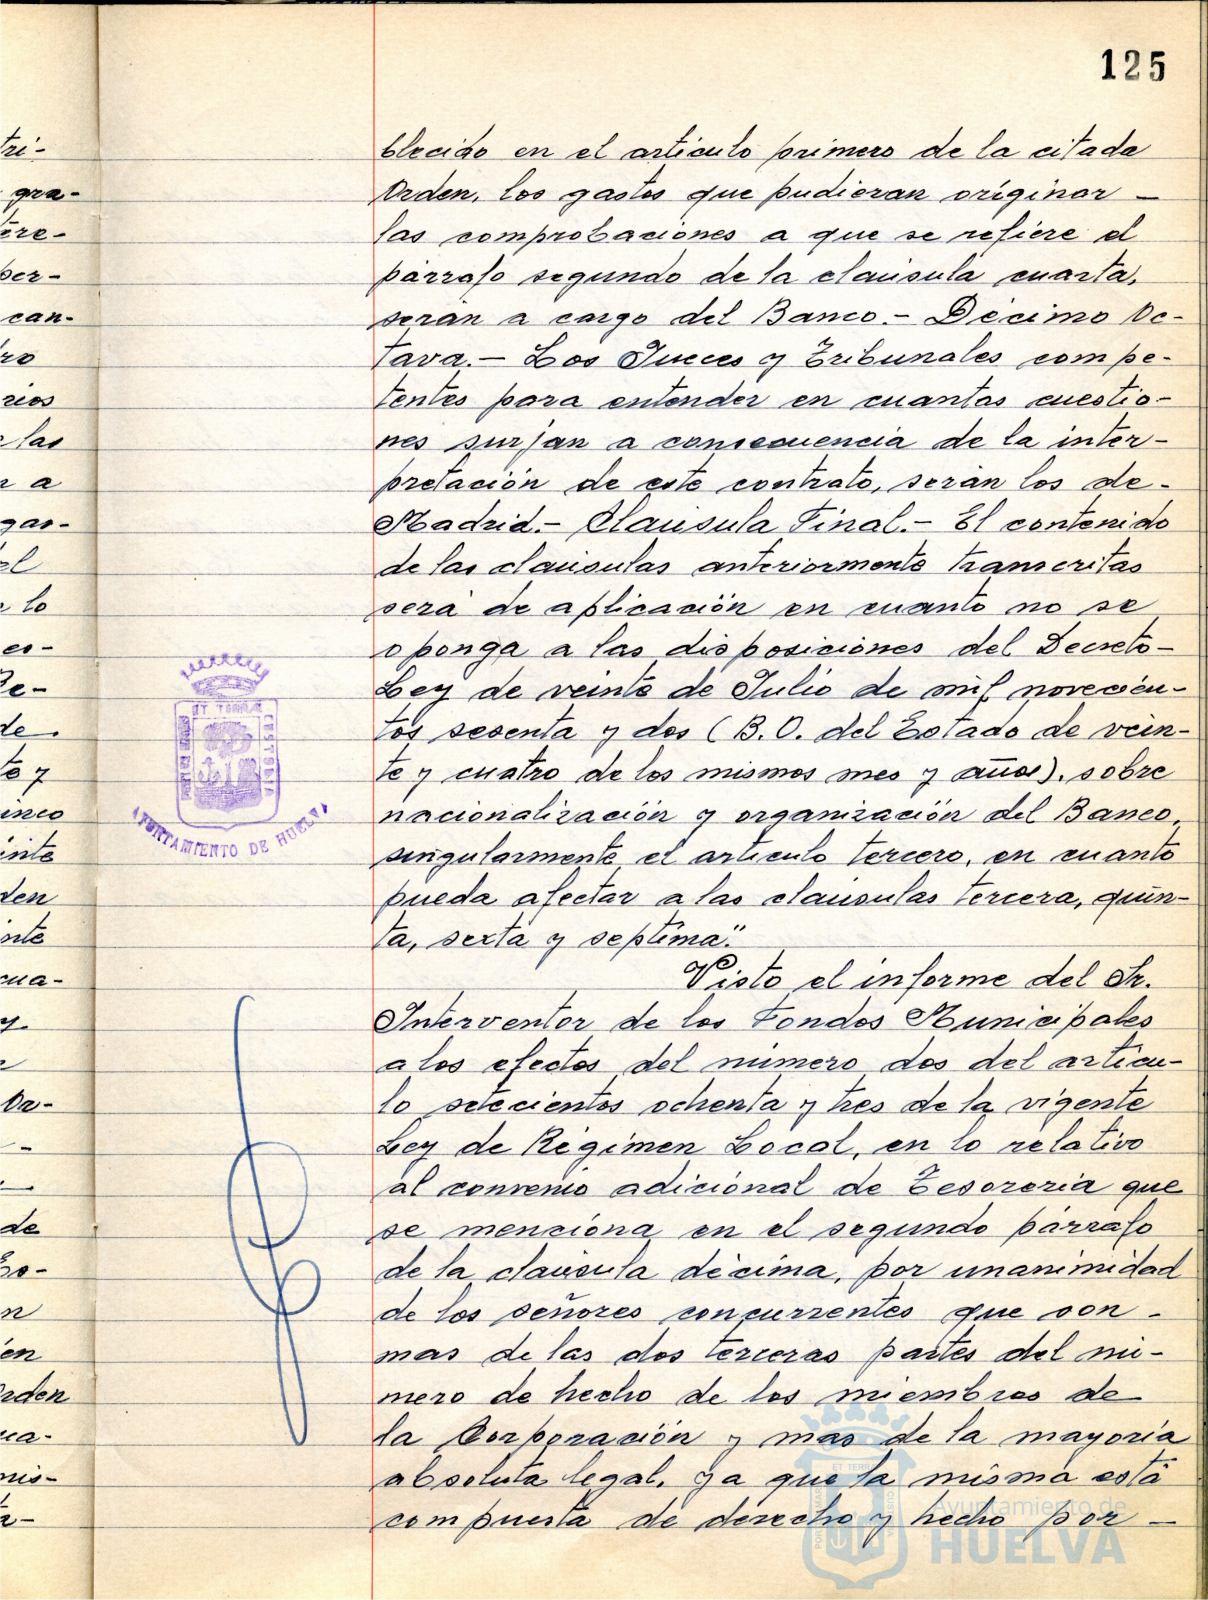 125
tri-
gra-
ere-
per-
can-
ro
rios
las
r a
gas-
el
lo
es-
Re-
de.
te y
inco
inte
den
nte
cua-
y.
Or-
de
Es-
n
en
Orden
ua-
mis-
a-
blecido en el artículo primero de la citada
Orden, los gastos que pudieran originar -
las comprobaciones a que se refiere el
párrafo segundo de la claúsula cuarta,
serán a cargo del Banco.- Décimo Oc-
tava.- Los Jueces y Tribunales compe-
tentes para entender en cuantas cuestio-
nes surjan a consecuencia de la inter-
pretación de este contrato, serán los de-
Madrid.- Claúsula Final.- El contenido
de las claúsulas anteriormente transcritas
será de aplicación en cuanto no se
oponga a las disposiciones del Decreto-
Ley de veinte de Julio de mil novecien-
tos sesenta y dos (B.O. del Estado de vein-
te y cuatro de los mismos mes y años), sobre
nacionalización y organización del Banco,
singularmente el artículo tercero, en cuanto
pueda afectar a las claúsulas tercera, quin-
ta, sexta y septima".
Visto el informe del Sr.
Interventor de los Fondos Municipales
a los efectos del número dos del artícu-
lo setecientos ochenta y tres de la vigente
Ley de Régimen Local, en lo relativo
al convenio adicional de Tesorería que
se menciona en el segundo párrafo
de la claúsula décima, por unanimidad
de los señores concurrentes que son -
mas de las dos terceras partes del nú-
mero de hecho de los miembros de
la Corporación y mas de la mayoría
absoluta legal, ya que la misma está
compuesta de derecho y hecho por -
AYUNTAMIENTO DE HUELVA
Ayuntamiento de
HUELVA